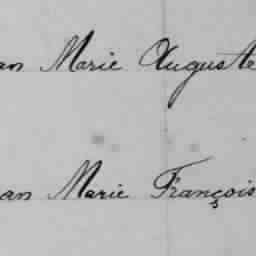 an Marie Auguste
an Marie François